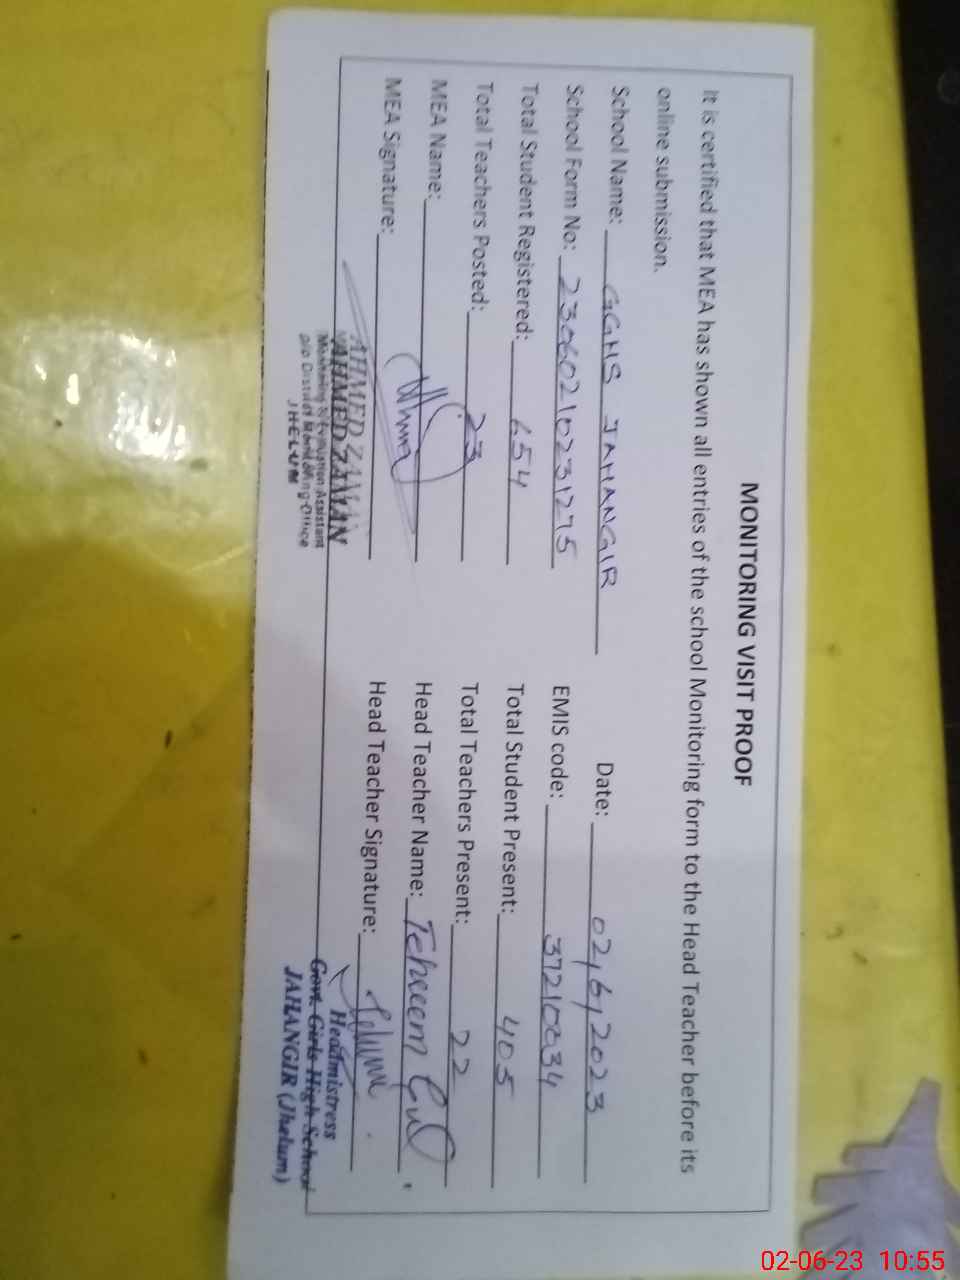 MONITORING VISIT PROOF
It is certified that MEA has shown all entries of the school Monitoring form to the Head Teacher before its
online submission.
School Name: GGHS JAHANGIR Date: 02,6,2023
School Form No: 23060210231275 EMIS code: 37210034
Total Student Registered: 654 Total Student Present: 405
Total Teachers Posted: 23 Total Teachers Present: 22
MEA Name: Head Teacher Name: Teheem Gul
MEA Signature: Head Teacher Signature:
AHMED ZAMAN
AHMED ZAMAN
Monitoring & Evaluation Assistant
O/o District Monitoring Office
JHELUM
Headmistress
Govt. Girls High School
JAHANGIR (Jhelum)
02-06-23 10:55